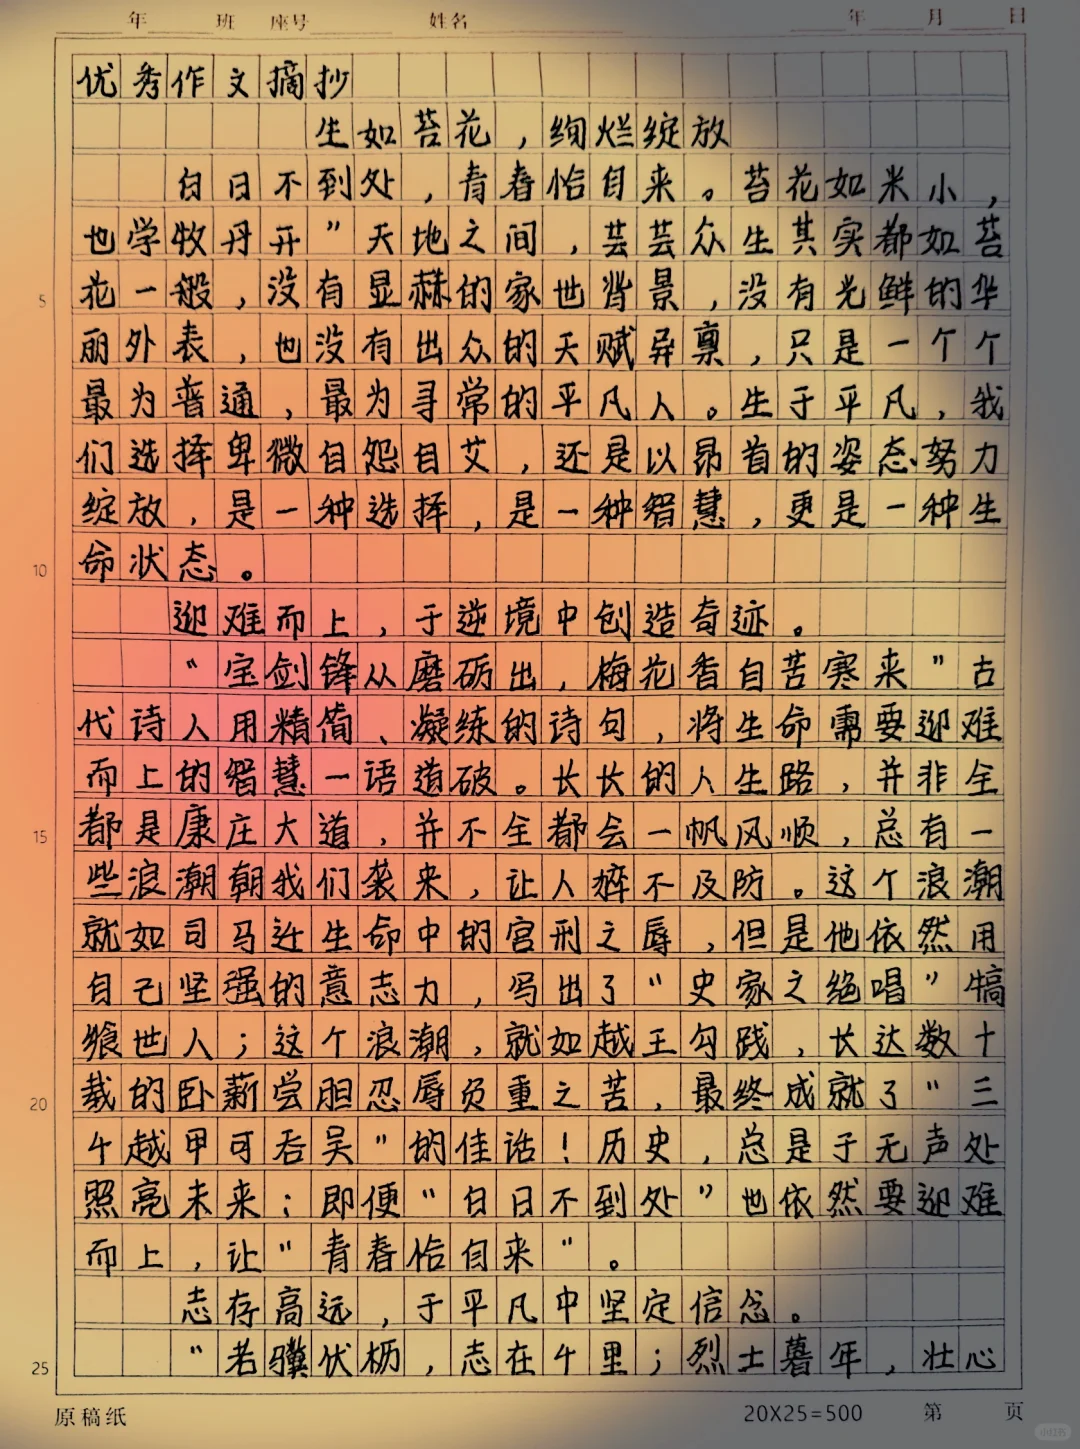 年 班 座号 姓名 年 月 日
优秀作文摘抄
生如苔花，绚烂绽放
白日不到处，青春恰自来。苔花如米小，
也学牧丹开”天地之间，芸芸众生其实都如苔
花一般，没有显赫的家世背景，没有光鲜的华
5
丽外表，也没有出众的天赋异禀，只是一个个
最为普通，最为寻常的平凡人。生于平凡，我
们选择卑微自怨自艾，还是以昂首的姿态努力
绽放，是一种选择，是一种智慧，更是一种生
命状态。
10
迎难而上，于逆境中创造奇迹。
“宝剑锋从磨砺出，梅花香自苦寒来”古
代诗人用精简、凝练的诗句，将生命需要迎难
而上的智慧一语道破。长长的人生路，并非全
都是康庄大道，并不全都会一帆风顺，总有一
15
些浪潮朝我们袭来，让人猝不及防。这个浪潮
就如司马迁生命中的宫刑之辱，但是他依然用
自己坚强的意志力，写出了“史家之绝唱”犒
飨世人；这个浪潮，就如越王勾践，长达数十
载的卧薪尝胆忍辱负重之苦，最终成就了“三
20
千越甲可吞吴”的佳话！历史，总是于无声处
照亮未来：即便“白日不到处”也依然要迎难
而上，让“青春恰自来”。
志存高远，于平凡中坚定信念。
“老骥伏枥，志在千里；烈士暮年，壮心
25
原稿纸 20X25=500 第 页
小红书